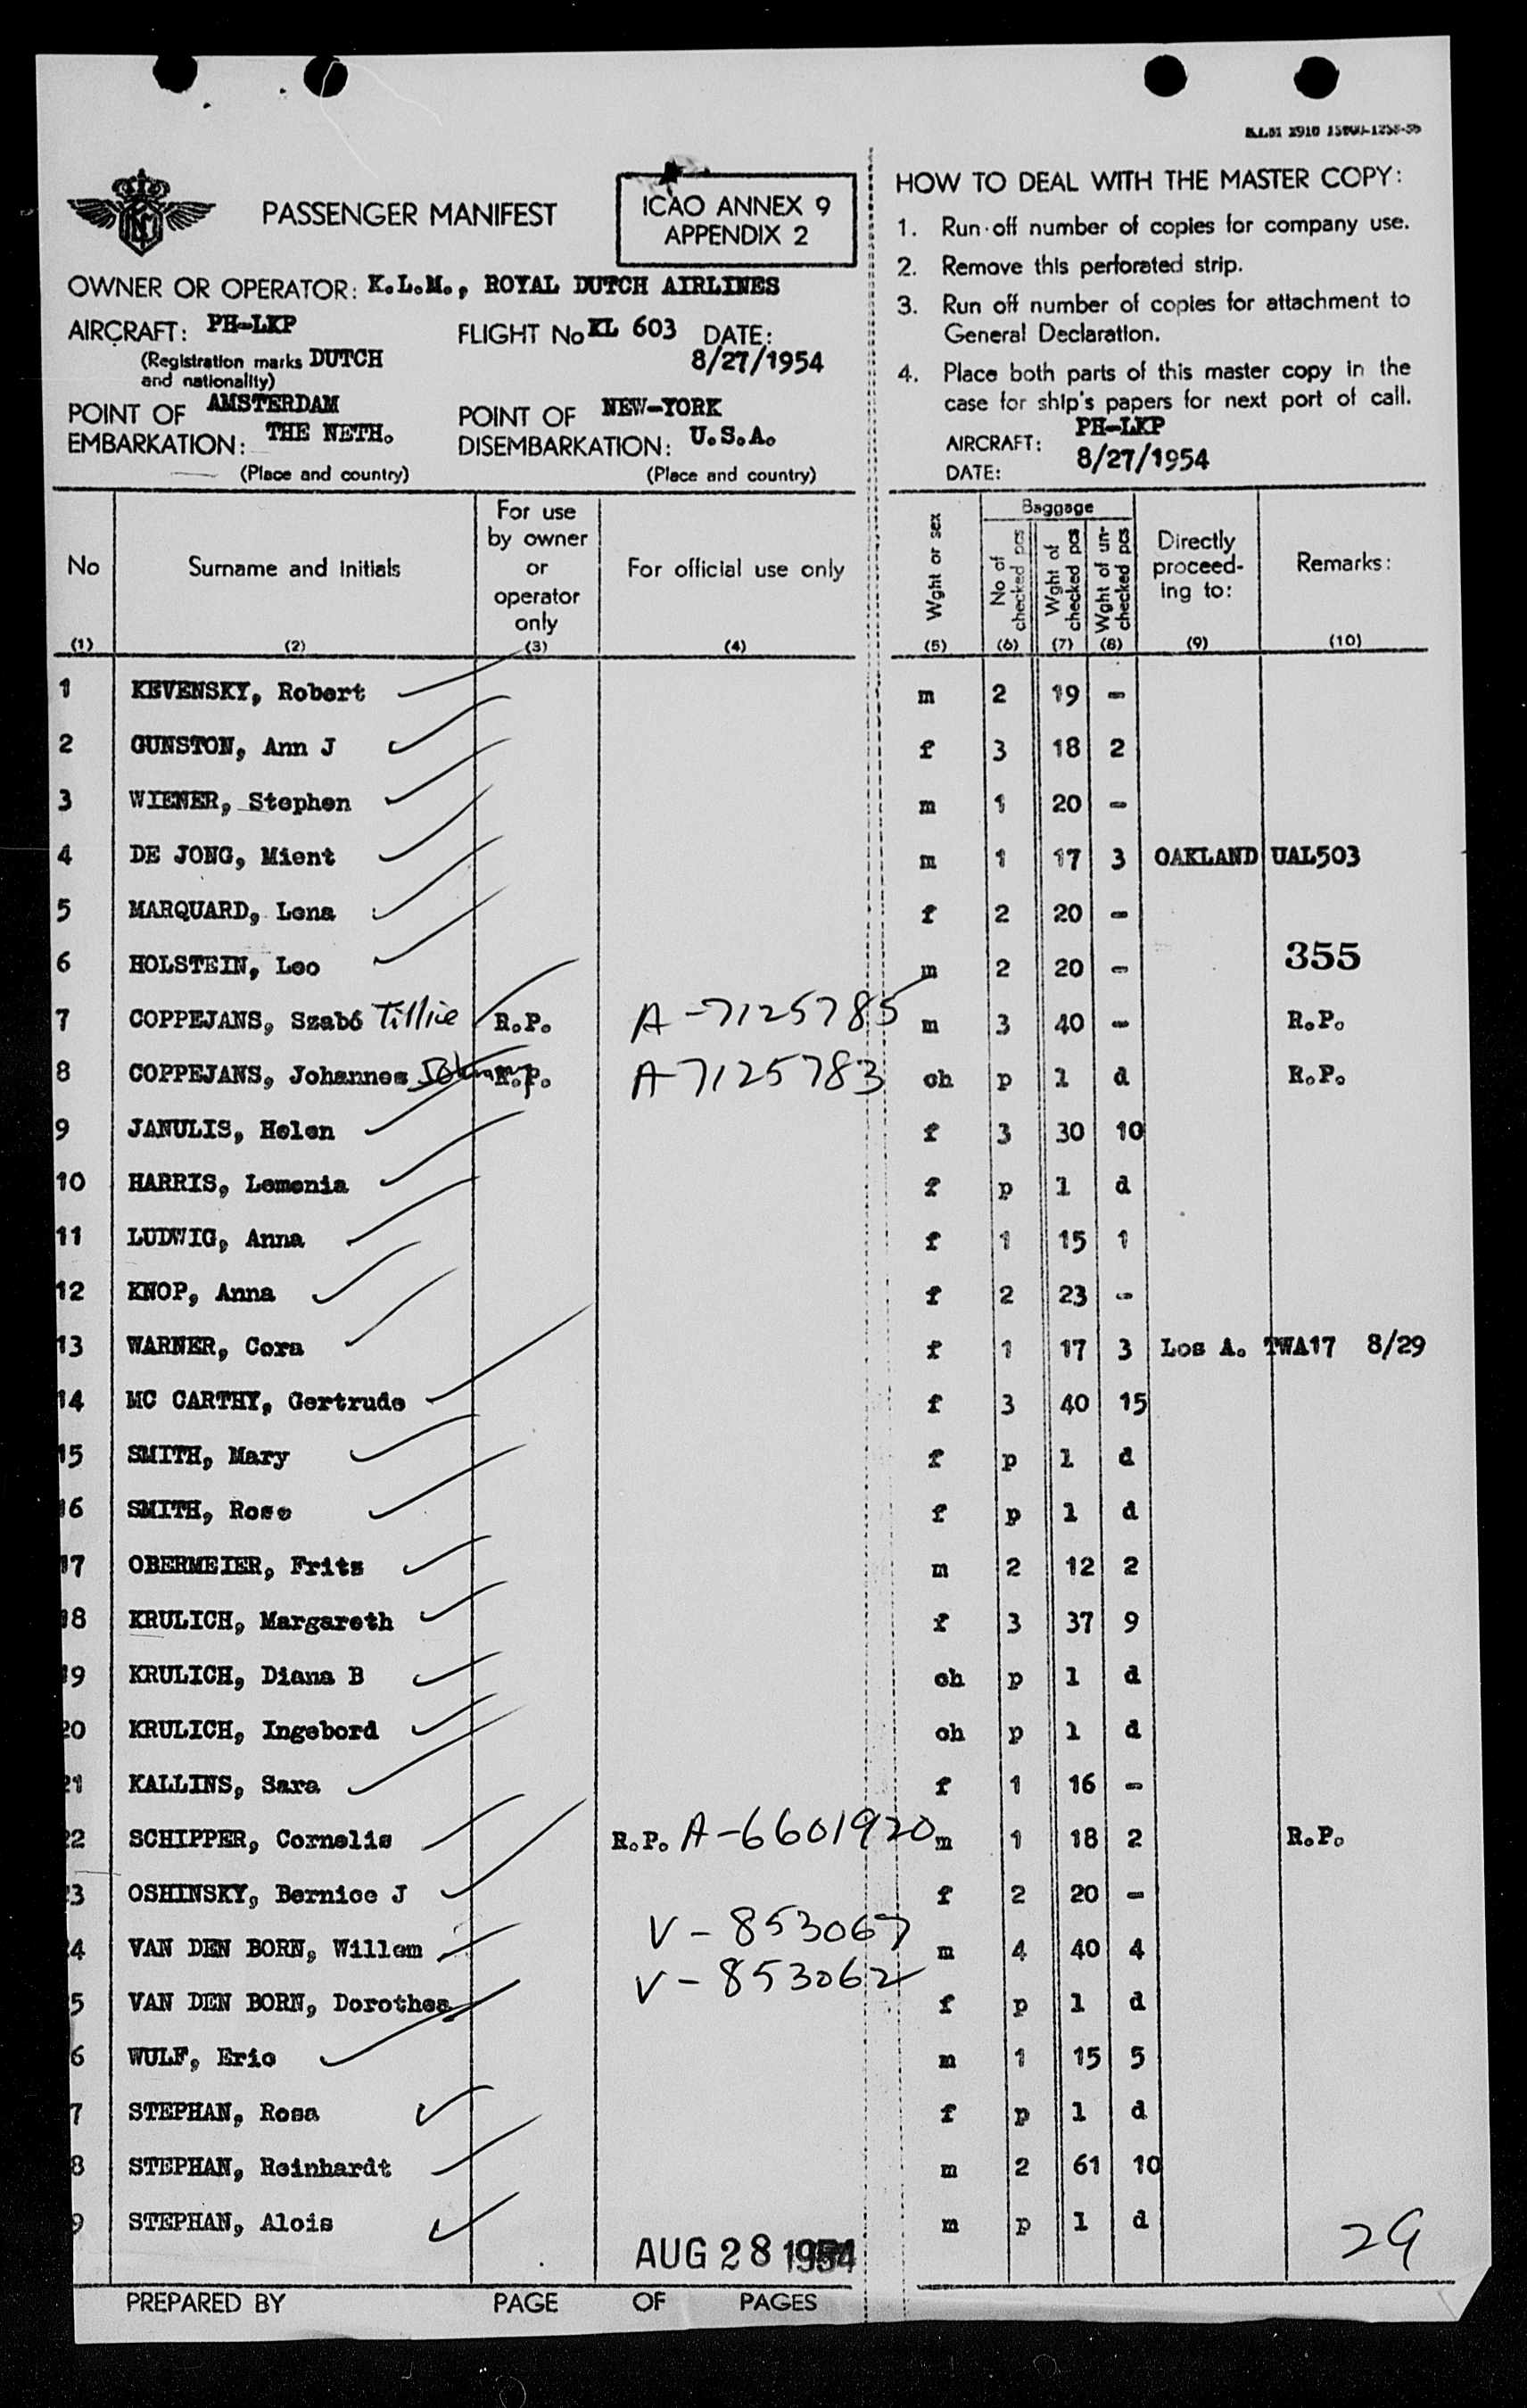 K.L.M 2910
PASSENGER MANIFEST
ICAO ANNEX 9
APPENDIX 2
OWNER OR OPERATOR: K.L.M., ROYAL DUTCH AIRLINES
AIRCRAFT: PH-LKP FLIGHT No KL 603 DATE:
(Registration marks DUTCH 8/27/1954
and nationality)
POINT OF AMSTERDAM POINT OF NEW-YORK
EMBARKATION: THE NETH. DISEMBARKATION: U.S.A.
(Place and country) (Place and country)
HOW TO DEAL WITH THE MASTER COPY:
1. Run off number of copies for company use.
2. Remove this perforated strip.
3. Run off number of copies for attachment to
General Declaration.
4. Place both parts of this master copy in the
case for ship's papers for next port of call.
AIRCRAFT: PH-LKP
DATE: 8/27/1954
No Surname and Initials For use by owner or operator only For official use only Wght or sex Baggage No of checked pcs Wght of checked pcs Wght of un-checked pcs Directly proceed-ing to: Remarks:
(1) (2) (3) (4) (5) (6) (7) (8) (9) (10)
1 KEVENSKY, Robert m 2 19 -
2 GUNSTON, Ann J f 3 18 2
3 WIENER, Stephen m 1 20 -
4 DE JONG, Mient m 1 17 3 OAKLAND UAL503
5 MARQUARD, Lena f 2 20 -
355
6 HOLSTEIN, Leo m 2 20 -
7 COPPEJANS, Szabó Tillie R.P. A-7125785 m 3 40 - R.P.
8 COPPEJANS, Johannes R.P. A7125783 ch p 1 d R.P.
9 JANULIS, Helen f 3 30 10
10 HARRIS, Lemonia f p 1 d
11 LUDWIG, Anna f 1 15 1
12 KNOP, Anna f 2 23 -
13 WARNER, Cora f 1 17 3 Los A. TWA17 8/29
14 MC CARTHY, Gertrude f 3 40 15
15 SMITH, Mary f p 1 d
16 SMITH, Rose f p 1 d
17 OBERMEIER, Frits m 2 12 2
18 KRULICH, Margareth f 3 37 9
19 KRULICH, Diana B ch p 1 d
20 KRULICH, Ingebord ch p 1 d
21 KALLINS, Sara f 1 16 -
22 SCHIPPER, Cornelis R.P. A-6601920 m 1 18 2 R.P.
3 OSHINSKY, Bernice J f 2 20 -
4 VAN DEN BORN, Willem V-853067 m 4 40 4
5 VAN DEN BORN, Dorothea V-853062 f p 1 d
6 WULF, Eric m 1 15 5
7 STEPHAN, Rosa f p 1 d
8 STEPHAN, Reinhardt m 2 61 10
9 STEPHAN, Alois m p 1 d
AUG 28 1954
29
PREPARED BY PAGE OF PAGES